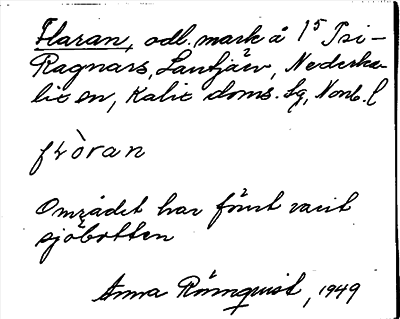 Flaran, odl. mark å 1⁵ Tri-
Ragnars, Lantjärv, Nederka-
lix en, Kalix doms. lg, Norrb. l
flòran
Området har förut varit
sjöbotten
Anna Rönnquist, 1949